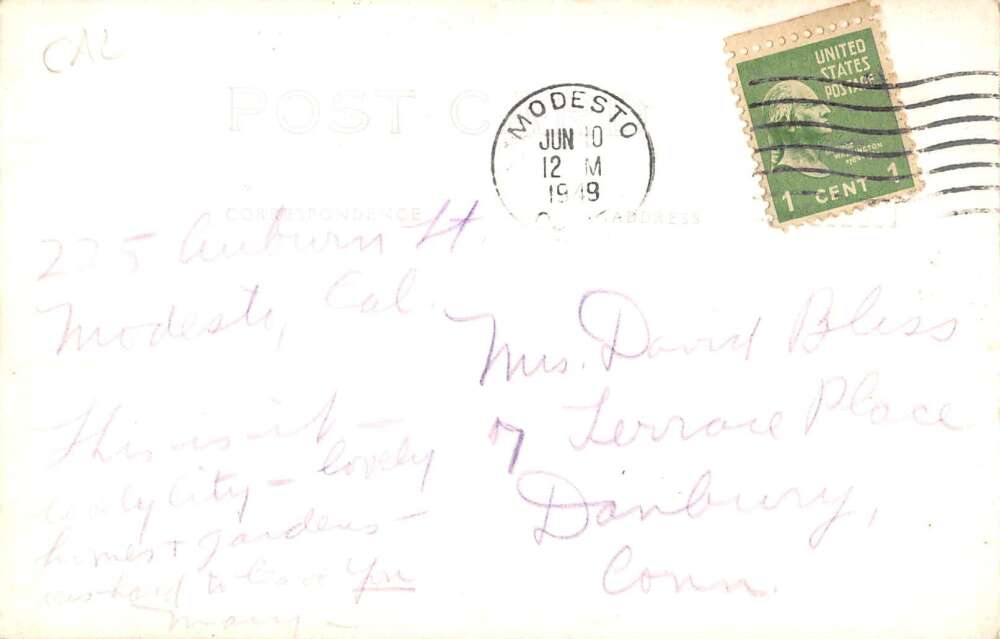 CAL
POST C
MODESTO
JUN 10
12 M
1949
UNITED
STATES
POSTAGE
WASHINGTON
1 CENT 1
CORRESPONDENCE
ADDRESS
225 Auburn St.
Modesto, Cal.
This is it -
lovely City - lovely
homes + gardens -
hard to leave you
Mary -
Mrs. David Bliss
7 Terrace Place
Danbury,
Conn.